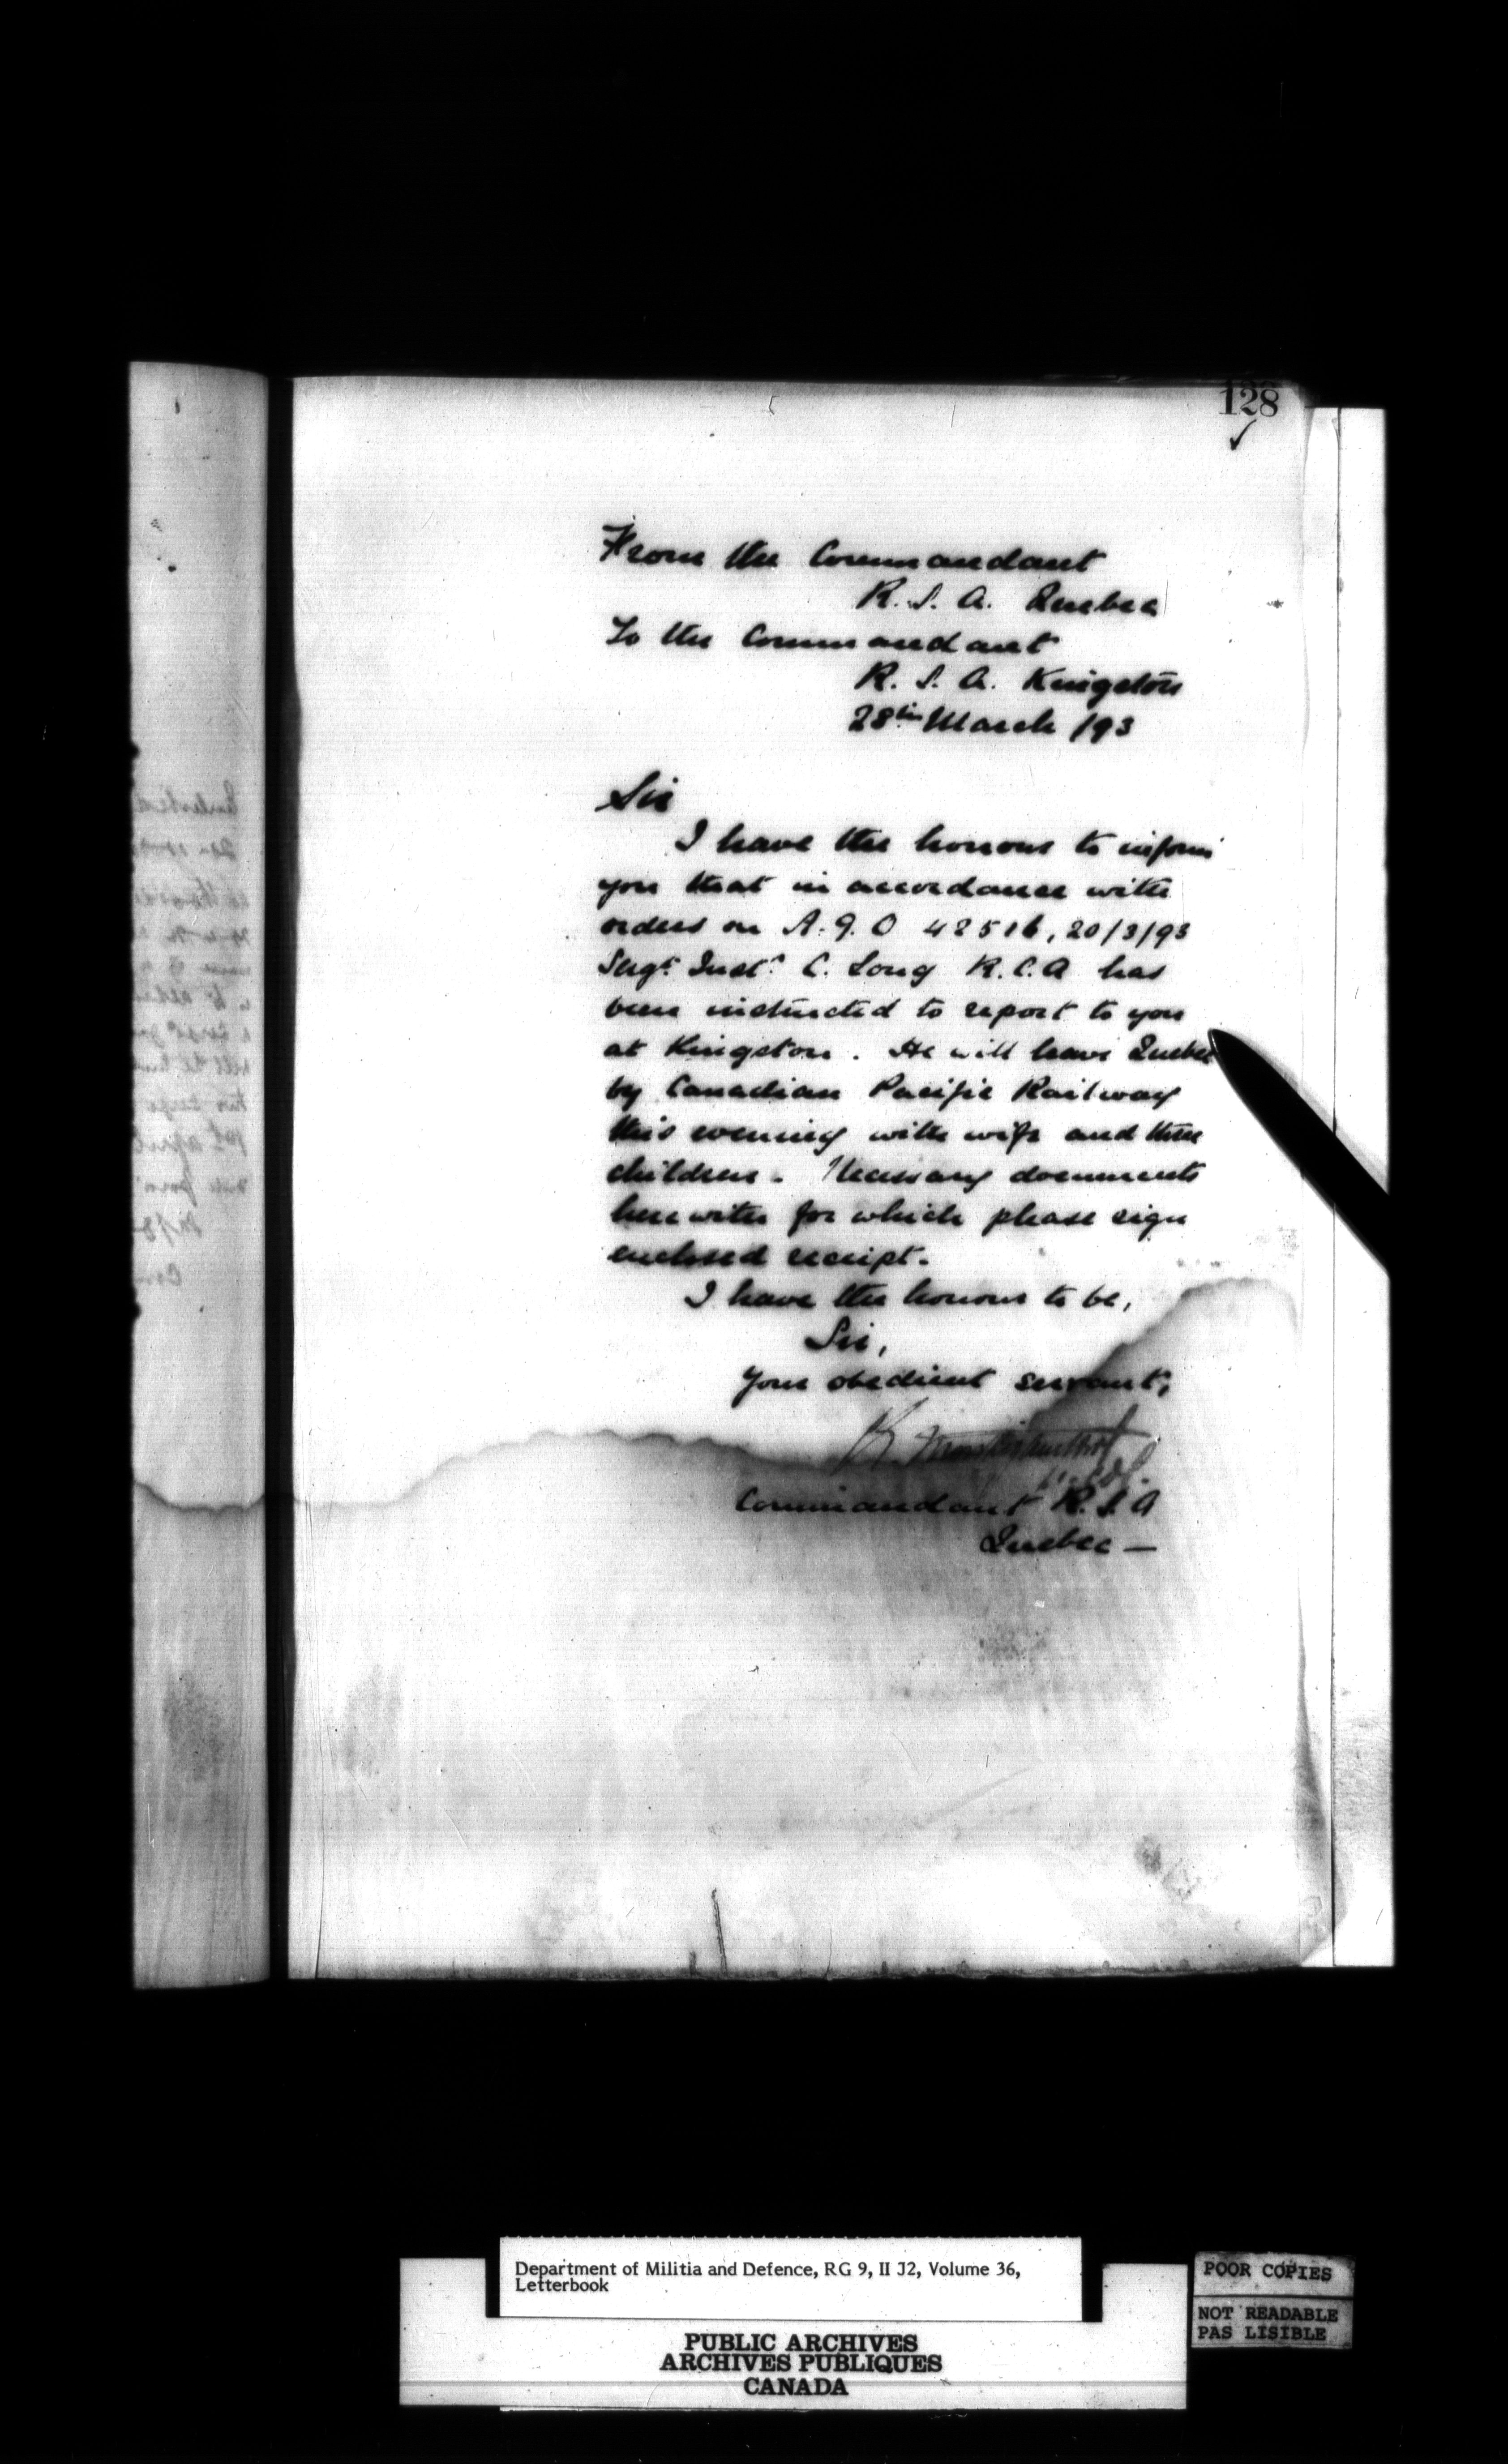 128
From the Commandant
R. S. A. Quebec
To the Commandant
R. S. A. Kingston
28th March /93
Sir
I have the honour to inform
you that in accordance with
orders on A. G. O 42516, 20/3/93
Sergt. Instr. C. Long R. C. A has
been instructed to report to you
at Kingston. He will leave Quebec
by Canadian Pacific Railway
this evening with wife and three
children. Necessary documents
herewith for which please sign
enclosed receipt.
I have the honour to be,
Sir,
Your obedient servant,
Commandant R. S. A
Quebec —
Department of Militia and Defence, RG 9, II J2, Volume 36,
Letterbook
PUBLIC ARCHIVES
ARCHIVES PUBLIQUES
CANADA
POOR COPIES
NOT READABLE
PAS LISIBLE